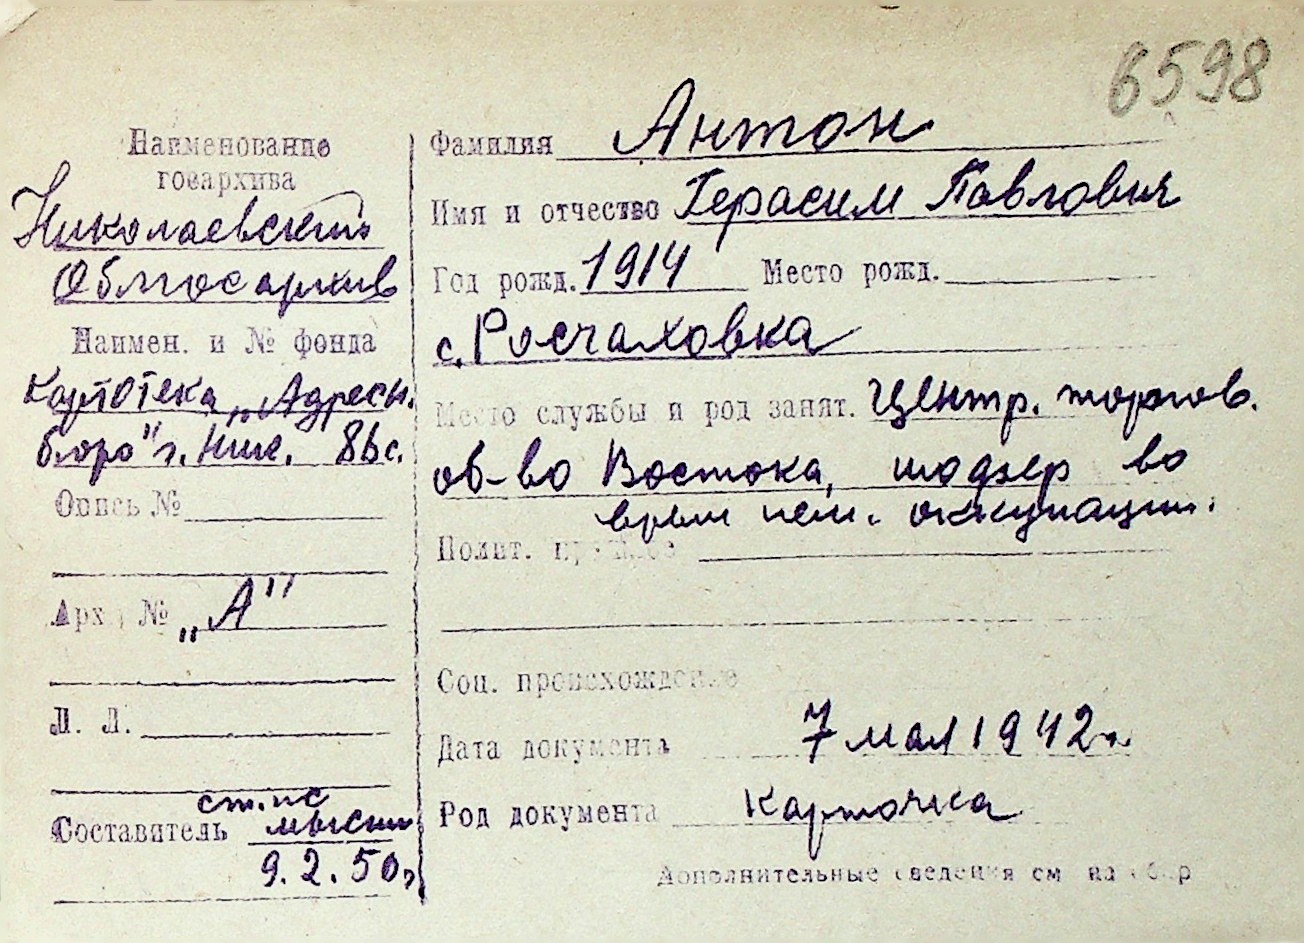 6598
Наименование
госархива
Николаевский
Облгосархив
Наимен. и № фонда
Картотека „Адресн.
бюро" г. Ник. 86 с.
Опись №
Арх №
„А"
Л. Л.
Составитель
ст. нс
9. 2. 50 г.
Фамилия Антон
Имя и отчество Герасим Павлович
Год рожд. 1914 Место рожд.
с. Росчаховка
Место службы и род занят. Центр. торгов.
об-во Востока, шофер во
время нем. оккупации.
Полит. прошлое
Соц. происхождение
Дата документа 7 мая 1942 г.
Род документа карточка
Дополнительные сведения см на обор